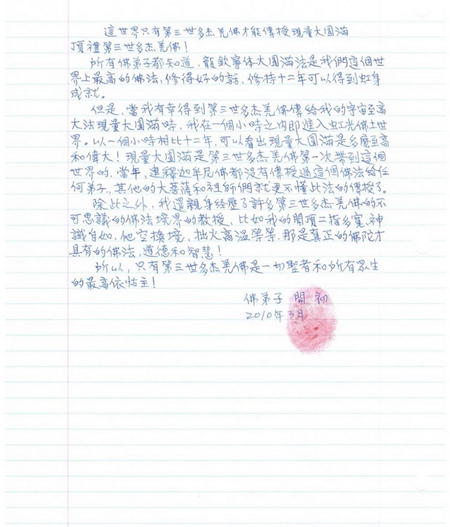 這世界只有第三世多杰羌佛才能傳授現量大圓滿
頂禮第三世多杰羌佛!
所有佛弟子都知道,龍欽寧体大圓滿法是我們這個世
界上最高的佛法,修得好的話,修持十二年可以得到虹身
成就。
但是,當我有幸得到第三世多杰羌佛傳給我的宇宙至高
大法現量大圓滿時,我在一個小時之內即進入虹光佛土世
界。以一個小時相比十二年,可以看出現量大圓滿是多麼至高
和偉大!現量大圓滿是第三世多杰羌佛第一次帶到這個
世界的,當年,連釋迦牟尼佛都沒有傳授過這個佛法給任
何弟子,其他的大菩薩和祖師們就更不懂此法的傳授了。
除此之外,我還親身經歷了許多第三世多杰羌佛的不
可思議的佛法境界的教授,比如我的開頂二指多寬,神
識自如,他空換境,拙火高溫等等,那是真正的佛陀才
具有的佛法,道德和智慧!
所以,只有第三世多杰羌佛是一切聖者和所有眾生
的最高依怙主!
佛弟子 開初
2010年3月